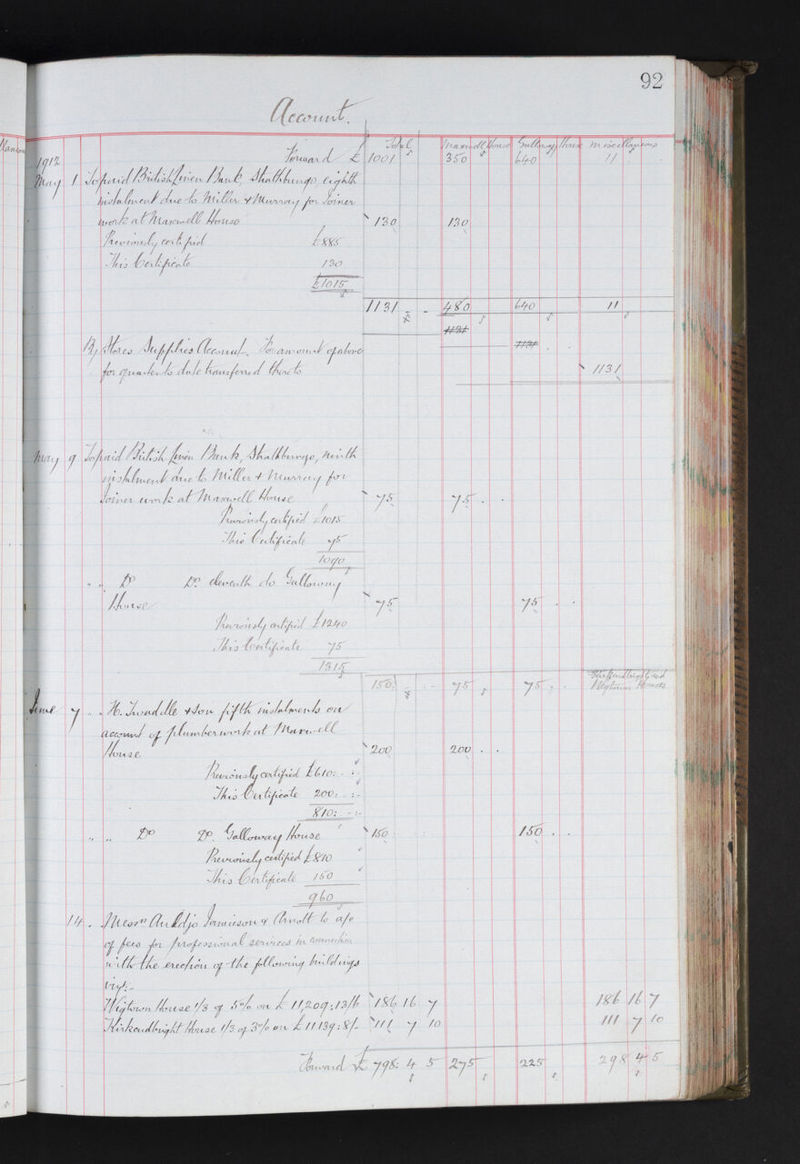 92
Account.
Total Maxwell House Galloway House Miscellaneous
1912 Forward £ 1001 350 640 11
May 1 To paid British Linen Bank, eighth
instalment due to Miller & Murray for Joiner
work at Maxwell House 130 130
Previously certified £885
This Certificate 130
£1015
1131 - - 480 640 11
1131
1131
By Stores Supplies Account. For amount of above
for quarter to date transferred thereto 1131
May 9 To paid British Linen Bank, ninth
instalment due to Miller & Murray for
Joiner work at Maxwell House 75 75 . .
Previously certified £1015
This Certificate 75
1090
" " Do Do eleventh do Galloway
House 75 75 . .
Previously certified £1240
This Certificate 75
1315
Kirkcudbright and
Wigtown Houses
150 75 75
June 7 " " & Son fifth instalments on
account of plumber work at Maxwell
House 200 200 . .
Previously certified £610: - : -
This Certificate 200: - : -
810: - : -
" " Do Do Galloway House 150 150 . .
Previously certified £810
This Certificate 150
960
14 " Messrs Auldjo Jamieson & Arnott to a/c
of fees for professional services in connection
with the erection of the following buildings
viz:-
Wigtown House 1/3 of 5% on £11,209:13/6 186 16 7 186 16 7
Kirkcudbright House 1/3 of 3% on £11139:8/- 111 7 10 111 7 10
Forward £ 798: 4 5 275 225 298 4 5